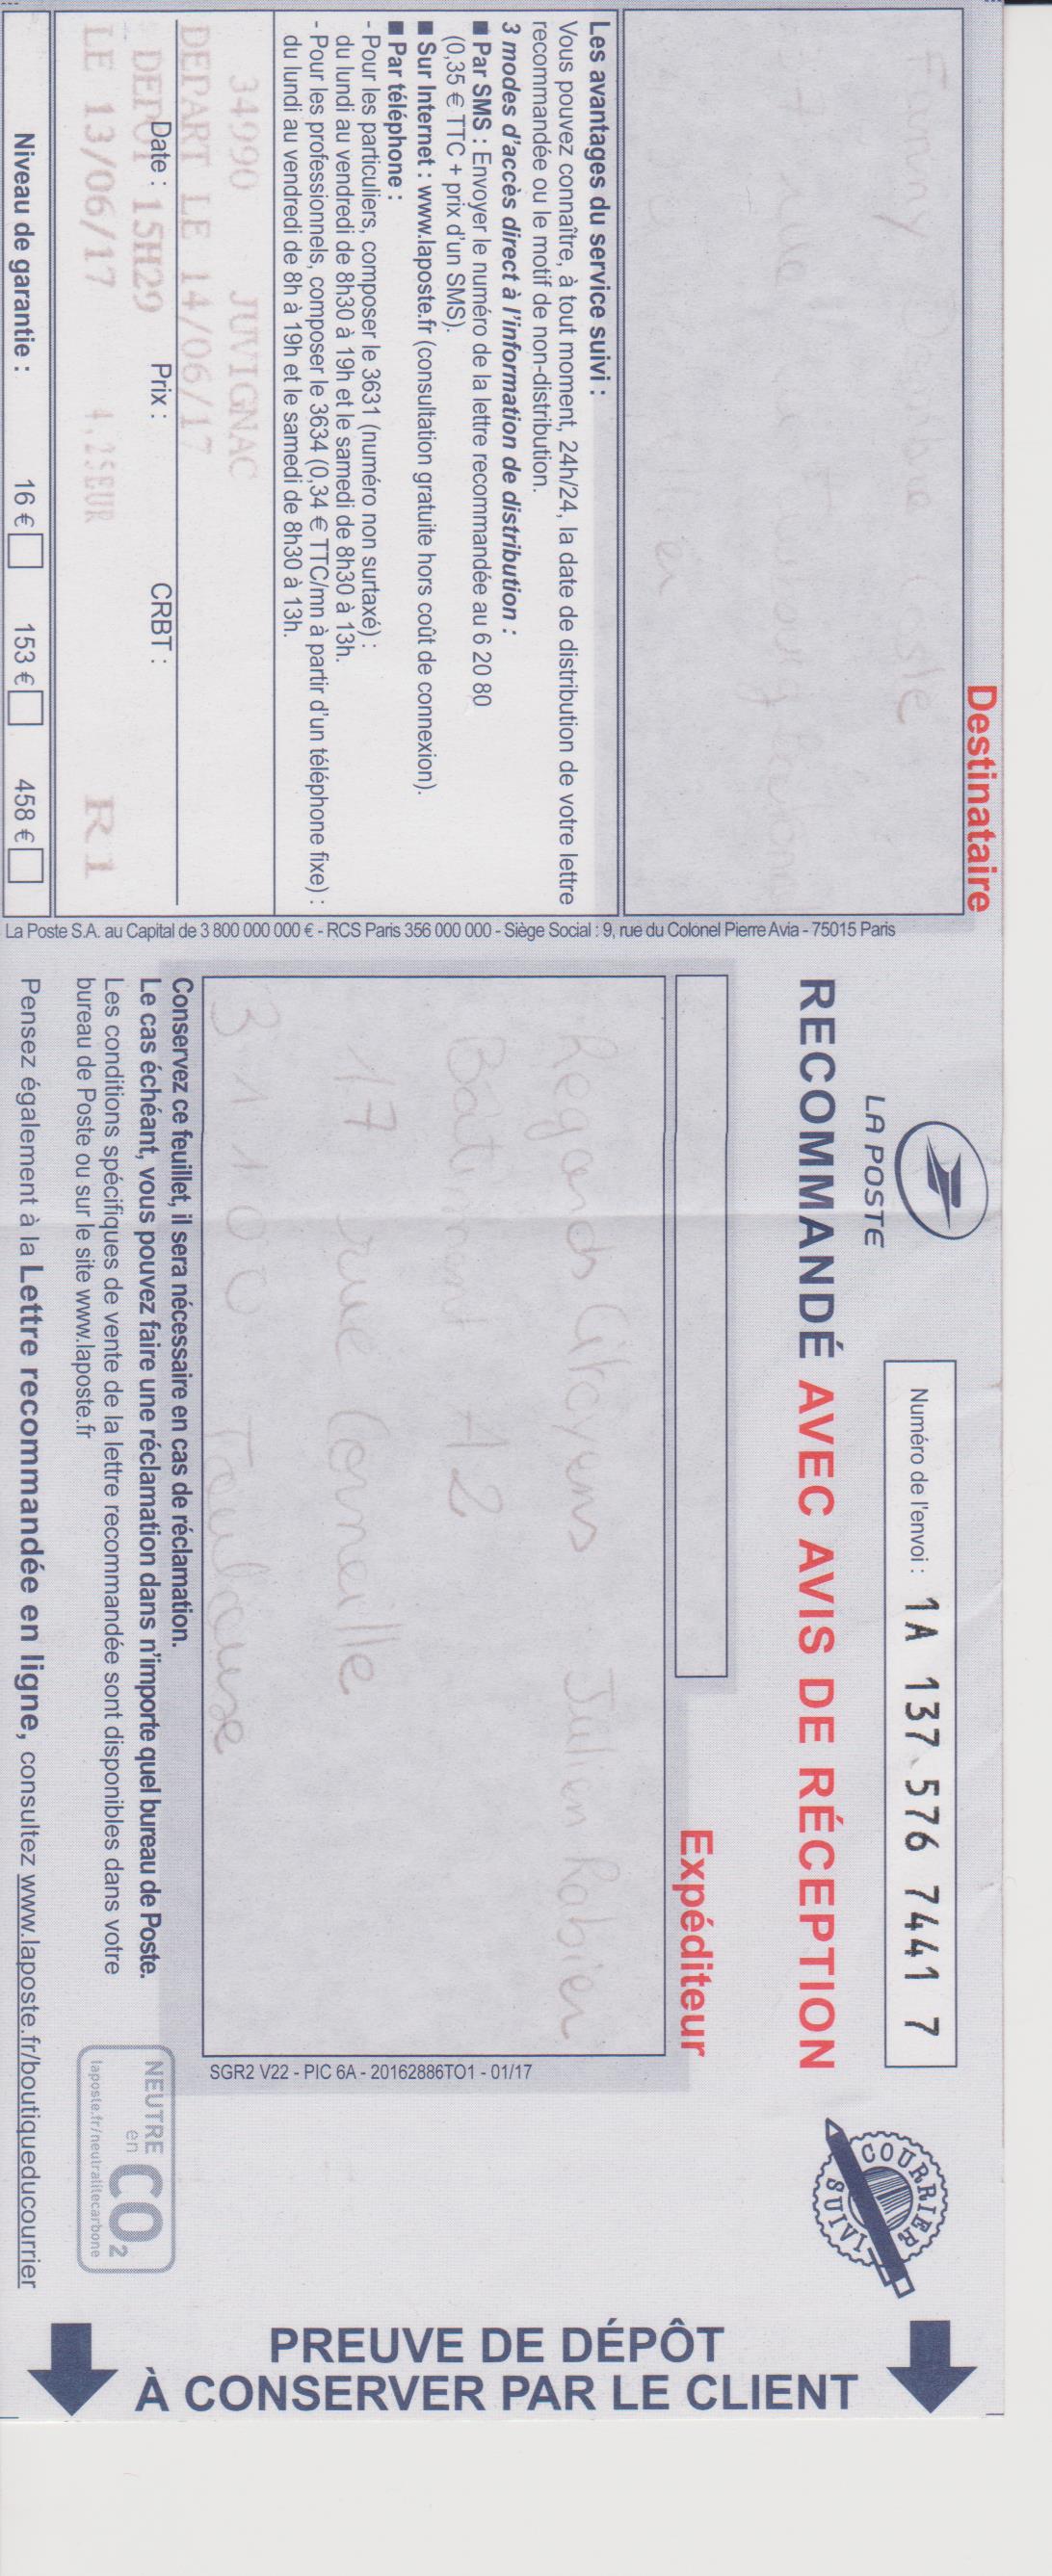 LA POSTE
Numéro de l'envoi : 1A 137 576 7441 7
RECOMMANDÉ AVEC AVIS DE RÉCEPTION
COURRIER SUIVI
Destinataire
Fanny
Les avantages du service suivi :
Vous pouvez connaître, à tout moment, 24h/24, la date de distribution de votre lettre
recommandée ou le motif de non-distribution.
3 modes d'accès direct à l'information de distribution :
■ Par SMS : Envoyer le numéro de la lettre recommandée au 6 20 80
(0,35 € TTC + prix d'un SMS).
■ Sur Internet : www.laposte.fr (consultation gratuite hors coût de connexion).
■ Par téléphone :
- Pour les particuliers, composer le 3631 (numéro non surtaxé) :
du lundi au vendredi de 8h30 à 19h et le samedi de 8h30 à 13h.
- Pour les professionnels, composer le 3634 (0,34 € TTC/mn à partir d'un téléphone fixe) :
du lundi au vendredi de 8h à 19h et le samedi de 8h30 à 13h.
34990 JUVIGNAC
DEPART LE 14/06/17
Date : Prix : CRBT :
DEPOT 15H29
LE 13/06/17 4,25EUR R1
Niveau de garantie : 16 € 153 € 458 €
La Poste S.A. au Capital de 3 800 000 000 € - RCS Paris 356 000 000 - Siège Social : 9, rue du Colonel Pierre Avia - 75015 Paris
Expéditeur
Regards Citoyens - Julien Rabier
Batiment A2
17 rue Corneille
31100 Toulouse
SGR2 V22 - PIC 6A - 20162886TO1 - 01/17
Conservez ce feuillet, il sera nécessaire en cas de réclamation.
Le cas échéant, vous pouvez faire une réclamation dans n'importe quel bureau de Poste.
Les conditions spécifiques de vente de la lettre recommandée sont disponibles dans votre
bureau de Poste ou sur le site www.laposte.fr
NEUTRE
en CO2
laposte.fr/neutralitecarbone
Pensez également à la Lettre recommandée en ligne, consultez www.laposte.fr/boutiqueducourrier
PREUVE DE DÉPÔT
À CONSERVER PAR LE CLIENT